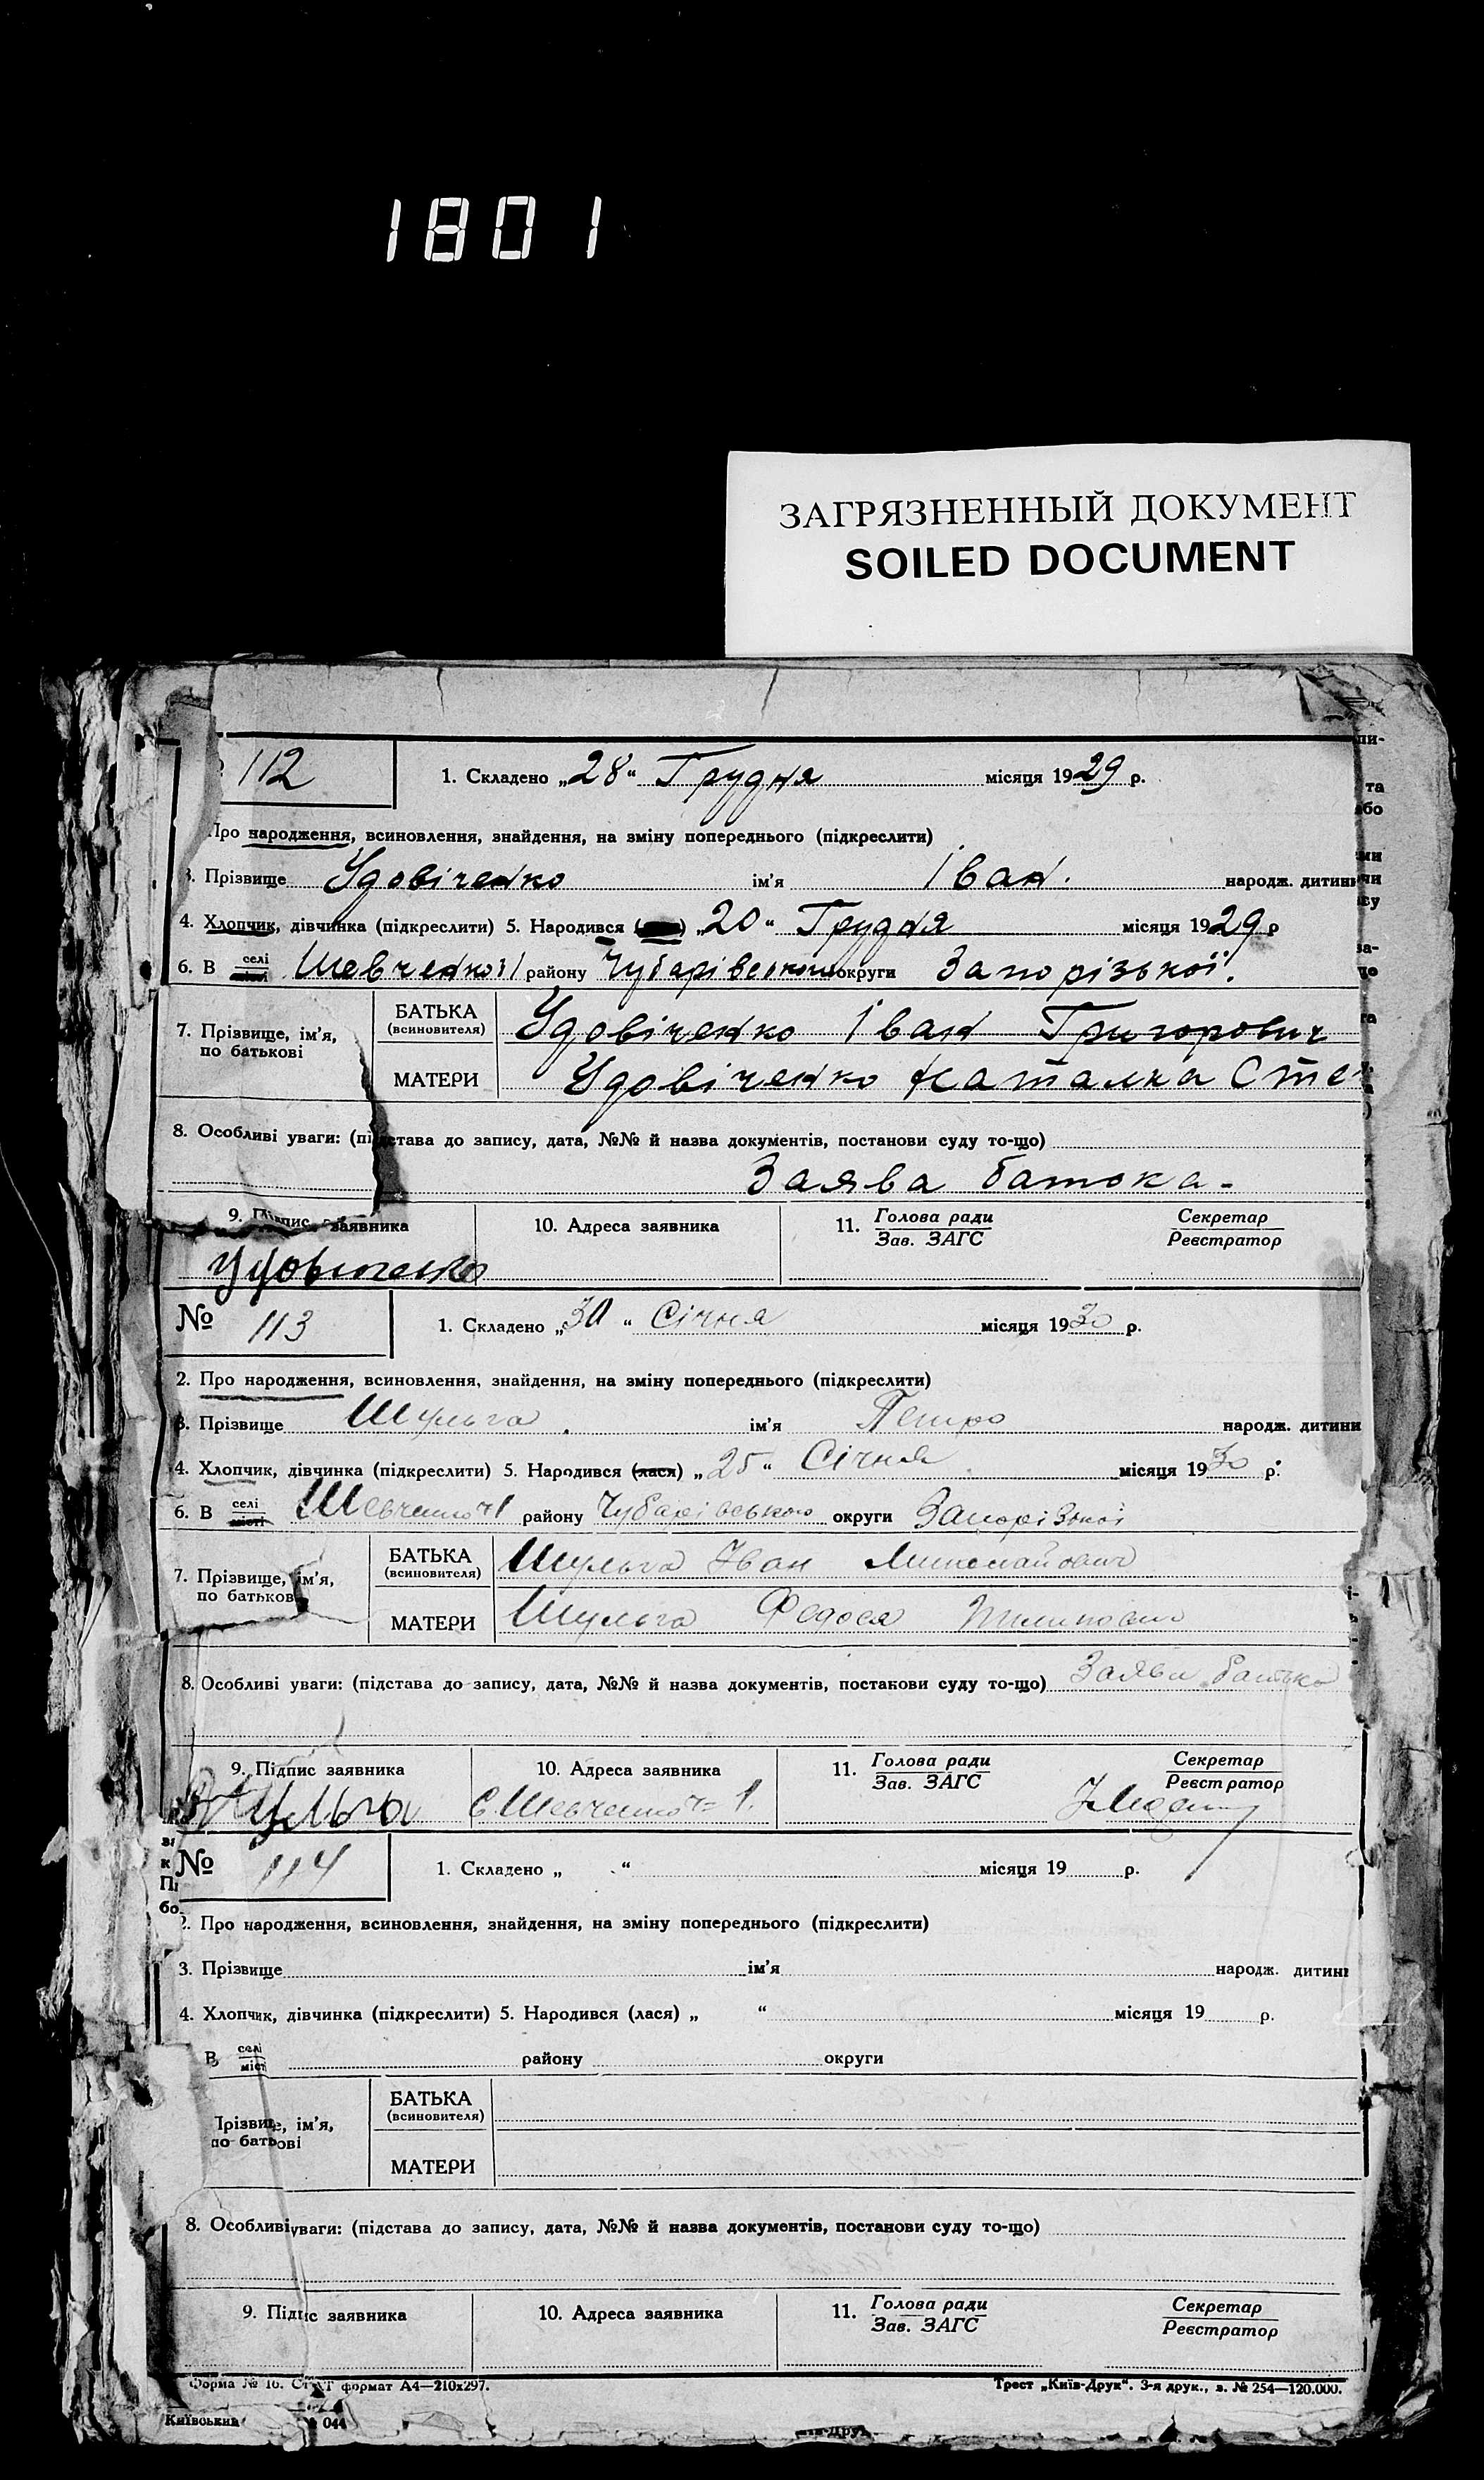 1801
ЗАГРЯЗНЕННЫЙ ДОКУМЕНТ
SOILED DOCUMENT
112
1. Складено „28“ Грудня місяця 1929 р.
Про народження, всиновлення, знайдення, на зміну попереднього (підкреслити)
3. Прізвище Удовіченко ім'я Іван. народж. дитини
4. Хлопчик, дівчинка (підкреслити) 5. Народився „20“ Грудня місяця 1929 р
6. В селі місті Шевченко 1 району Чубарівського округи Запорізької.
7. Прізвище, ім'я, по батькові
БАТЬКА (всиновителя) Удовіченко Іван Григорович
МАТЕРИ Удовіченко Наталка Сте
8. Особливі уваги: (підстава до запису, дата, №№ й назва документів, постанови суду то-що)
Заява батька.
9. Підпис заявника 10. Адреса заявника 11. Голова ради Зав. ЗАГС Секретар Реєстратор
№ 113
1. Складено „30“ Січня місяця 1930 р.
2. Про народження, всиновлення, знайдення, на зміну попереднього (підкреслити)
3. Прізвище Шульга ім'я Петро народж. дитини
4. Хлопчик, дівчинка (підкреслити) 5. Народився (лася) „25“ Січня місяця 1930 р.
6. В селі місті Шевченко 1 району Чубарівського округи Запорізької
7. Прізвище, ім'я, по батькові
БАТЬКА (всиновителя) Шульга Іван Миколайович
МАТЕРИ Шульга Федося Пилиповна
8. Особливі уваги: (підстава до запису, дата, №№ й назва документів, постанови суду то-що) Заява батька
9. Підпис заявника 10. Адреса заявника 11. Голова ради Зав. ЗАГС Секретар Реєстратор
Шульга С. Шевченко 1.
№ 114
1. Складено „ “ місяця 19 р.
2. Про народження, всиновлення, знайдення, на зміну попереднього (підкреслити)
3. Прізвище ім'я народж. дитини
4. Хлопчик, дівчинка (підкреслити) 5. Народився (лася) „ “ місяця 19 р.
В селі місті району округи
Прізвище, ім'я, по батькові
БАТЬКА (всиновителя)
МАТЕРИ
8. Особливі уваги: (підстава до запису, дата, №№ й назва документів, постанови суду то-що)
9. Підпис заявника 10. Адреса заявника 11. Голова ради Зав. ЗАГС Секретар Реєстратор
Форма № 16. формат А4—210х297. Трест „Київ-Друк“. 3-я друк., з. № 254—120.000.
Київський 044